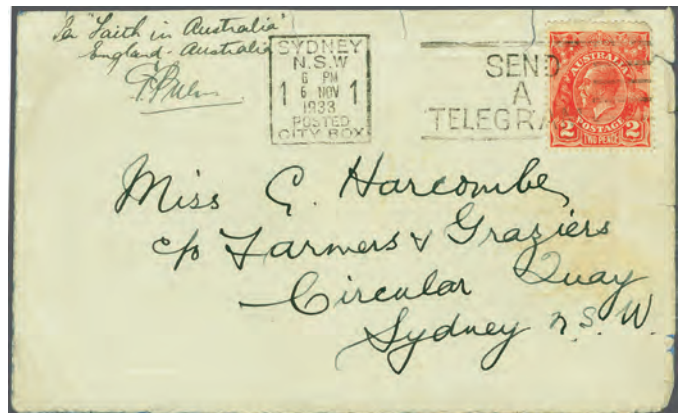 Per "Faith in Australia"
England - Australia
SYDNEY
N.S.W
6 PM
1 6 NOV 1
1933
POSTED
CITY BOX
SEND
A
TELEGRA
AUSTRALIA
2 POSTAGE 2
TWO PENCE
Miss G. Harcombe
c/o Farmers & Graziers
Circular Quay
Sydney N.S.W.